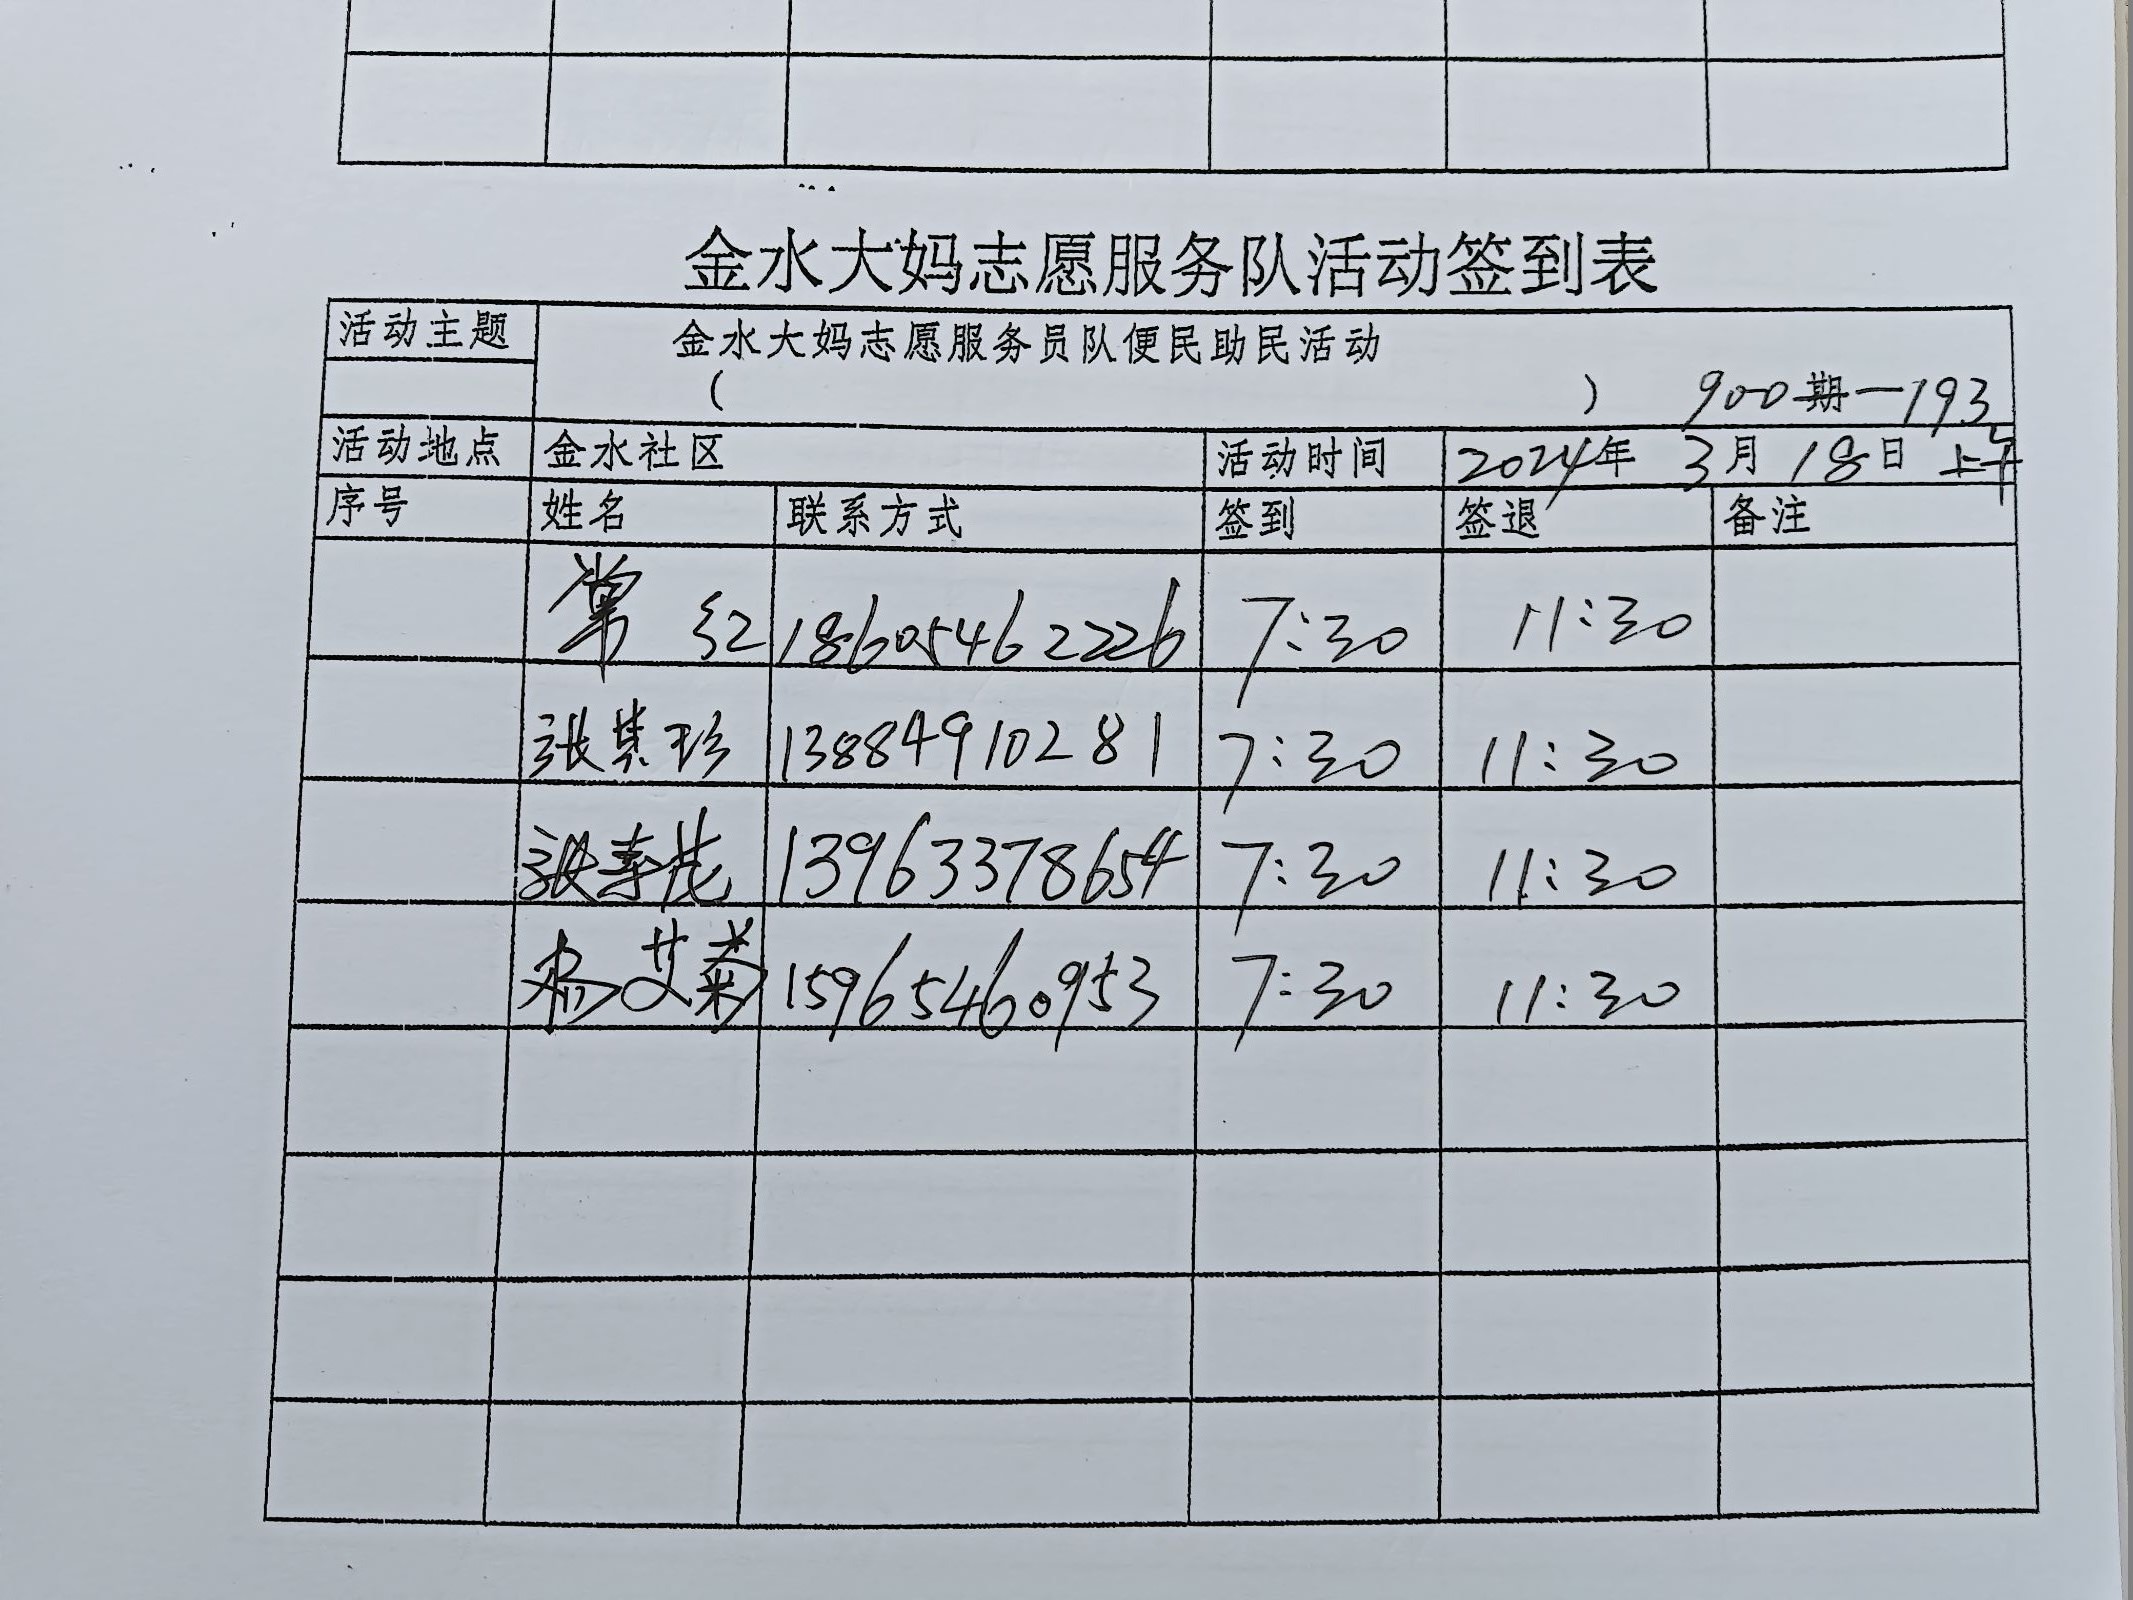 金水大妈志愿服务队活动签到表
活动主题 金水大妈志愿服务员队便民助民活动
( ) 900期一193
活动地点 金水社区 活动时间 2024年 3月 18日 上午
序号 姓名 联系方式 签到 签退 备注
常 红 18605462226 7:30 11:30
张其珍 13884910281 7:30 11:30
张春花 13963378654 7:30 11:30
艾菊 15965460953 7:30 11:30